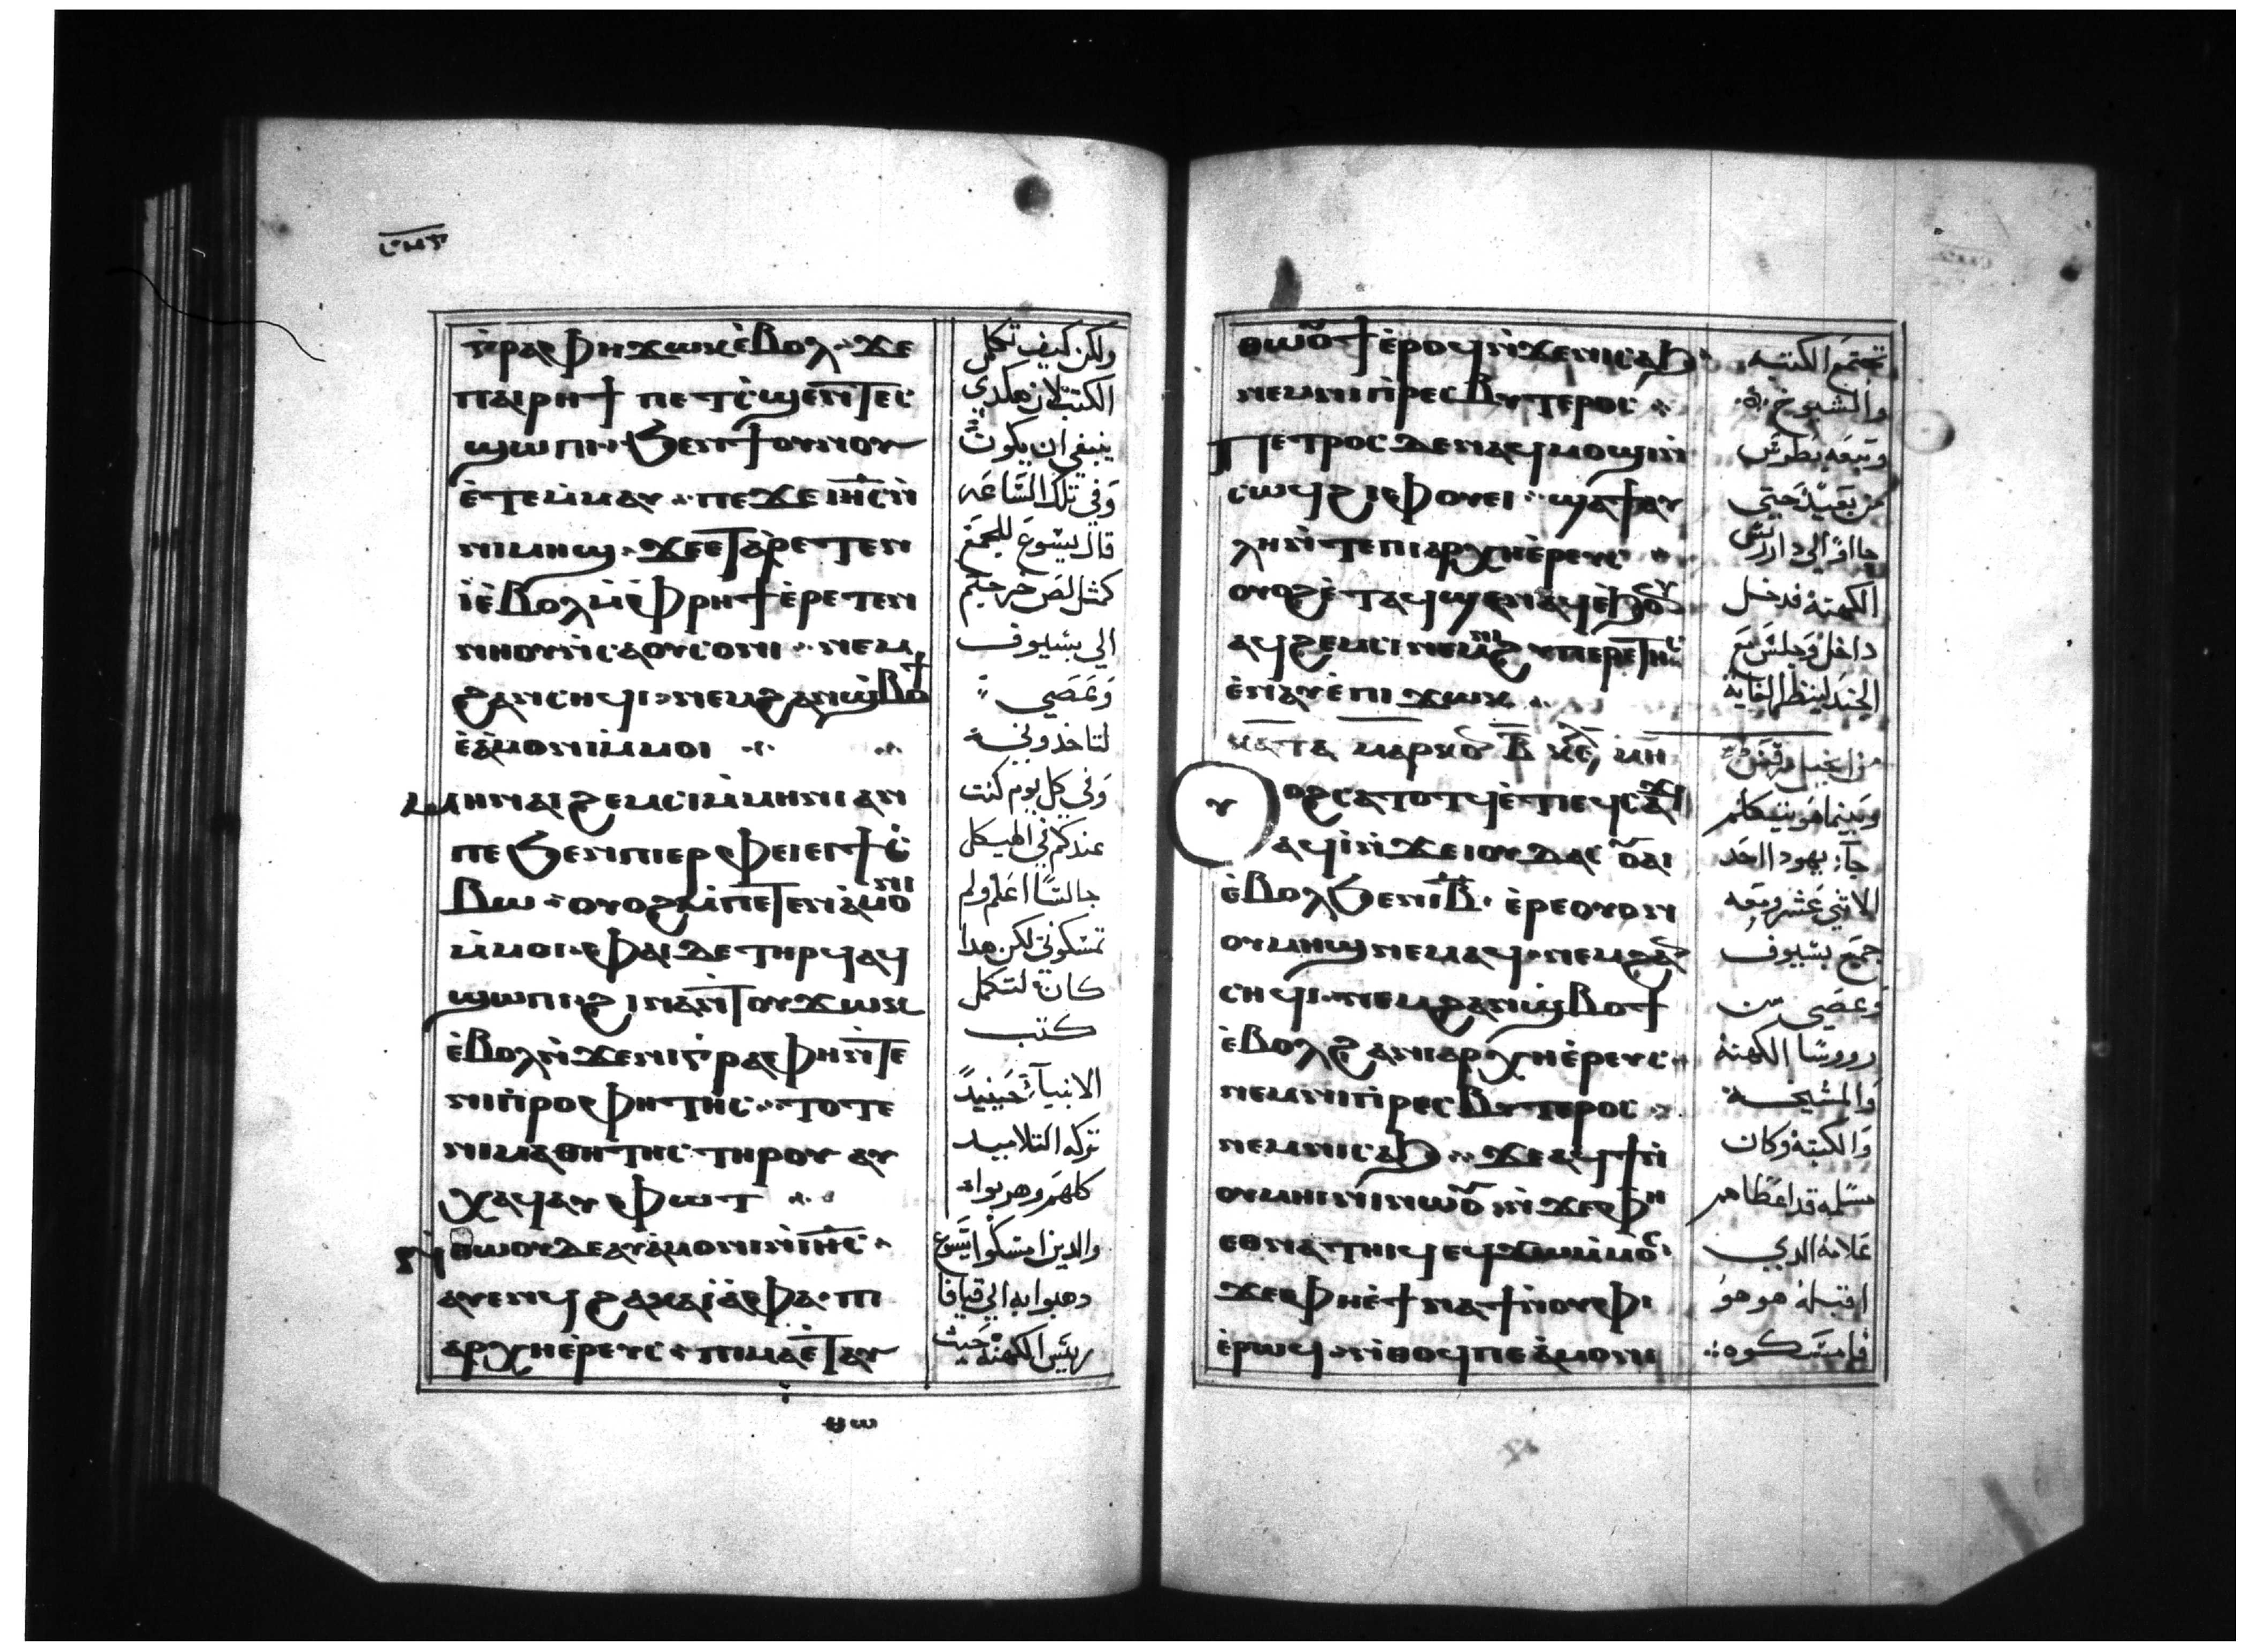 ⲅⲣⲁⲫⲏ ϫⲱⲕ ⲉ̀ⲃⲟⲗ ϫⲉ
ⲡⲁⲓⲣⲏϯ ⲡⲉⲧⲥ̀ϣⲉ ⲛ̀ⲧⲉⲥ
ϣⲱⲡⲓ ϧⲉⲛ ϯⲟⲩⲛⲟⲩ
ⲉ̀ⲧⲉⲙ̀ⲙⲁⲩ ⲡⲉϫⲉ ⲓⲏ̅ⲥ̅ ⲛ̀
ⲛⲓⲙⲏϣ ϫⲉ ⲉⲧⲁⲣⲉⲧⲉⲛ
ⲓ̀ ⲉ̀ⲃⲟⲗ ⲙ̀ⲫⲣⲏϯ ⲉ̀ⲣⲉⲧⲉⲛ
ⲛⲏⲟⲩ ⲛ̀ⲥⲁ ⲟⲩⲥⲟⲛⲓ ⲛⲉⲙ
ϩⲁⲛⲥⲏϥⲓ ⲛⲉⲙ ϩⲁⲛϣ̀ⲃⲟϯ
ⲉ̀ⲁ̀ⲙⲟⲛⲓ ⲙ̀ⲙⲟⲓ
ⲙⲏ ⲛⲁⲓϩⲉⲙⲥⲓ ⲙ̀ⲙⲏⲛⲓ ⲁⲛ
ⲡⲉ ϧⲉⲛ ⲡⲓⲉⲣⲫⲉⲓ ⲉⲓϯⲥ̀
ⲃⲱ ⲟⲩⲟϩ ⲙ̀ⲡⲉⲧⲉⲛⲁ̀ⲙⲟⲛⲓ
ⲙ̀ⲙⲟⲓ ⲫⲁⲓ ⲇⲉ ⲧⲏⲣϥ ⲁϥ
ϣⲱⲡⲓ ϩⲓⲛⲁ ⲛ̀ⲧⲟⲩϫⲱⲕ
ⲉ̀ⲃⲟⲗ ⲛ̀ϫⲉ ⲛⲓⲅ̀ⲣⲁⲫⲏ ⲛ̀ⲧⲉ
ⲛⲓⲡ̀ⲣⲟⲫⲏⲧⲏⲥ ⲧⲟⲧⲉ
ⲛⲓⲙⲁⲑⲏⲧⲏⲥ ⲧⲏⲣⲟⲩ ⲁⲩ
ⲭⲁϥ ⲁⲩⲫⲱⲧ
ⲛ̀ⲑⲱⲟⲩ ⲇⲉ ⲁⲩⲁ̀ⲙⲟⲛⲓ ⲛ̀ⲓⲏ̅ⲥ̅
ⲁⲩⲉⲛϥ ϩⲁ ⲕⲁⲓ̀ⲁ̀ⲫⲁ ⲡⲓ
ⲁⲣⲭⲏⲉ̀ⲣⲉⲩⲥ ⲡⲓⲙⲁ ⲉ̀ⲧⲁⲩ
ولكن كيف تكمل
الكتب لان هكدي
ينبغي ان يكون
وفي تلك الساعه
قال يسوع للجمع
كمثل لص خرجتم
الي بسيوف
وعصي
لتاخدوني
وفي كل يوم كنت
عندكم في الهيكل
جالسا اعلم ولم
تمسكوني لكن هدا
كان لتكمل
كتب
الانبيا حينيد
تركه التلاميد
كلهم وهربوا
والدين امسكوا يسوع
دهبوا به الي قيافا
رييس الكهنه حيث
ⲑⲱⲟⲩϯ ⲉ̀ⲣⲟϥ ⲛ̀ϫⲉ ⲛⲓⲥⲁϧ
ⲛⲉⲙ ⲛⲓⲡ̀ⲣⲉⲥⲃⲩⲧⲉⲣⲟⲥ
ⲡⲉⲧⲣⲟⲥ ⲇⲉ ⲛⲁϥⲙⲟϣⲓ ⲛ̀
ⲥⲱϥ ϩⲓⲫⲟⲩⲉⲓ ϣⲁ ϯⲁⲩ
ⲗⲏ ⲛ̀ⲧⲉ ⲡⲓⲁⲣⲭⲏⲉ̀ⲣⲉⲩⲥ
ⲟⲩⲟϩ ⲉ̀ⲧⲁϥϣⲉⲛⲁϥ ⲉ̀ϧⲟⲩⲛ
ⲁϥϩⲉⲙⲥⲓ ⲛⲉⲙ ⲛⲓϩⲩⲡⲉⲣⲉⲧⲏⲥ
ⲉ̀ⲛⲁⲩ ⲉ̀ⲡⲓϫⲱⲕ
ⲕⲁⲧⲁ ⲙⲁⲣⲕⲟⲥ
ⲟⲩⲟϩ ⲥⲁⲧⲟⲧϥ ⲉ̀ⲧⲓ ⲉϥⲥⲁϫⲓ
ⲁϥⲓ̀ ⲛ̀ϫⲉ ⲓⲟⲩⲇⲁⲥ ⲟⲩⲁⲓ
ⲉ̀ⲃⲟⲗ ϧⲉⲛ ⲓ̅ⲃ̅ ⲉ̀ⲣⲉ ⲟⲩⲟⲛ
ⲟⲩⲙⲏϣ ⲛⲉⲙⲁϥ ⲛⲉⲙ ϩⲁⲛ
ⲥⲏϥⲓ ⲛⲉⲙ ϩⲁⲛϣ̀ⲃⲟϯ
ⲉ̀ⲃⲟⲗ ϩⲁ ⲛⲓⲁⲣⲭⲏⲉ̀ⲣⲉⲩⲥ
ⲛⲉⲙ ⲛⲓⲡ̀ⲣⲉⲥⲃⲩⲧⲉⲣⲟⲥ
ⲛⲉⲙ ⲛⲓⲥⲁϧ ϫⲉ ⲁϥϯ ⲛ̀
ⲟⲩⲙⲏⲓⲛⲓ ⲛⲱⲟⲩ ⲛ̀ϫⲉ ⲫⲏ
ⲉⲑⲛⲁⲧⲏⲓϥ ⲉϥϫⲱ ⲙ̀ⲙⲟⲥ
ϫⲉ ⲫⲏ ⲉ̀ϯⲛⲁϯ ⲛ̀ⲟⲩⲫⲓ
ⲉ̀ⲣⲱϥ ⲛ̀ⲑⲟϥ ⲡⲉ ⲁ̀ⲙⲟⲛⲓ
تجتمع الكتبه
والشيوخ
وتبعه بطرس
من بعيد حتي
جا الي دار رييس
الكهنه فدخل
داخل وجلس مع
الجند لينظر الغايه
من انجيل مرقس
وبينما هو يتكلم
جآ يهودا احد
الاثني عشر ومعه
جمع بسيوف
وعصي من
رووسا الكهنه
والمشيخه
والكتبه وكان
مسلمه قد اعطاهم
علامه الدي
اقبله هو هو
فامسكوه